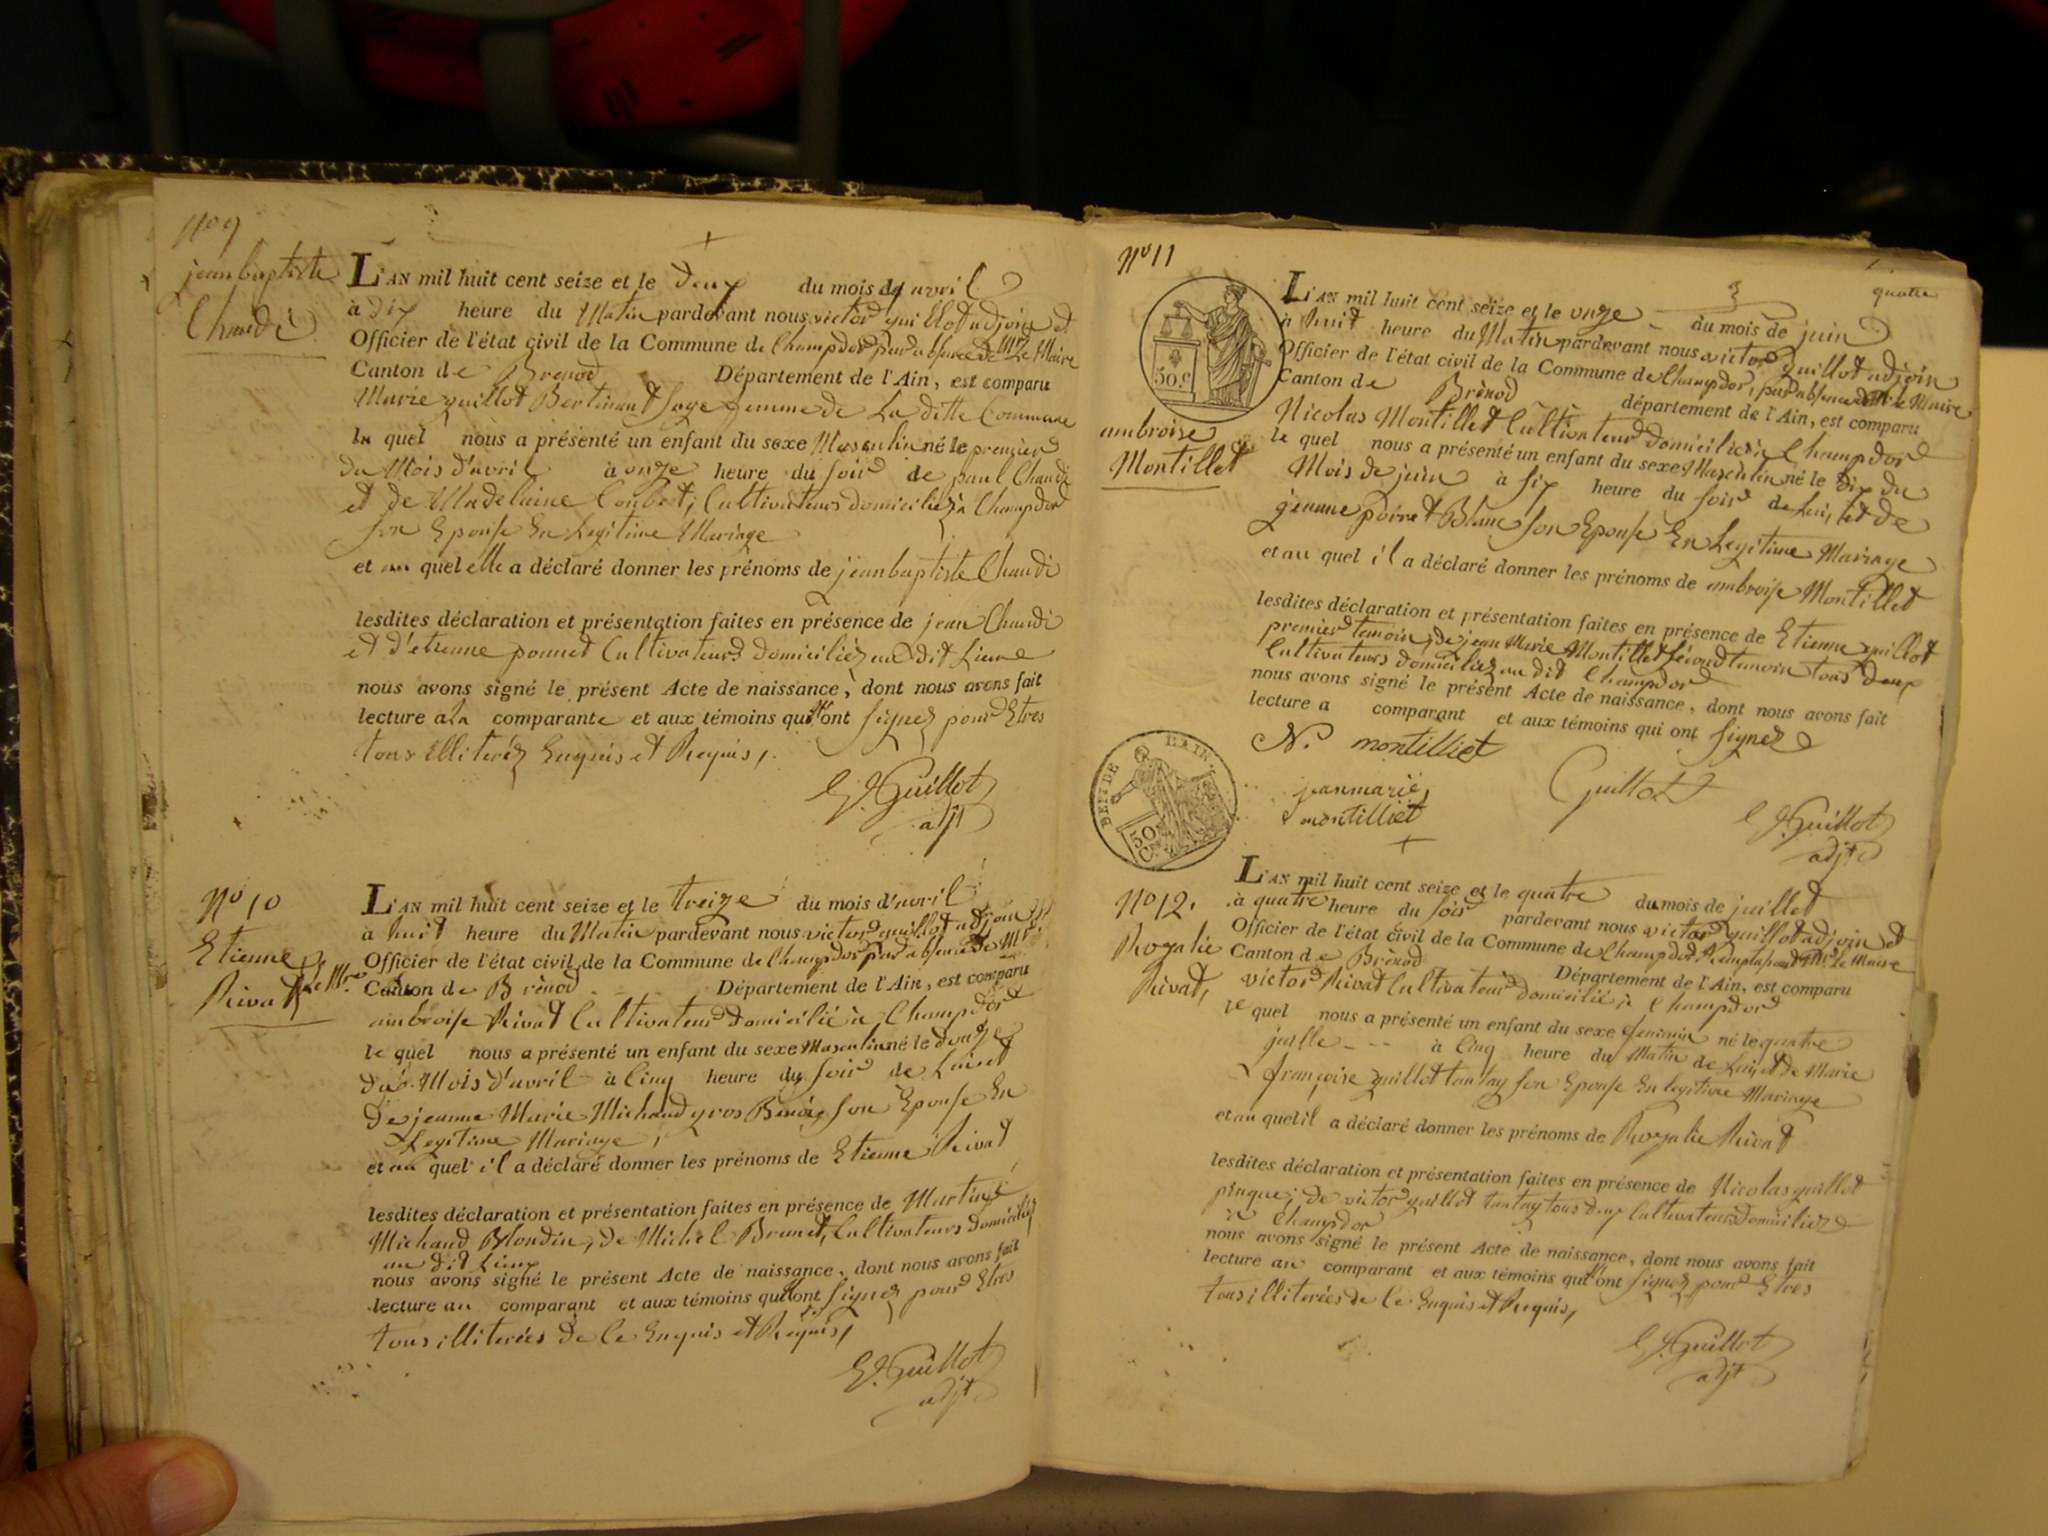 No 9
jeanbaptiste
Chaudé
L'AN mil huit cent seize et le deux du mois d'avril
à dix heure du Matin pardevant nous victor guillot adjoin et
Officier de l'état civil de la Commune de Champdor par absence de Mr Le Maire
Canton de Brenod Département de l'Ain, est comparu
Marie guillot Bertinant sage femme de La ditte Commune
la quel nous a présenté un enfant du sexe Masculin né le premier
du Mois d'avril à onze heure du soir de paul Chaudé
et de Madelaine Combet, Cultivateurs domiciliéz à Champdor
son Epouse En Legitime Mariage
et au quel elle a déclaré donner les prénoms de jeanbaptiste Chaudé
lesdites déclaration et présentation faites en présence de jean Chaudé
et d'etienne ponnet Cultivateurs domiciliéz au dit Lieu
nous avons signé le présent Acte de naissance, dont nous avons fait
lecture a la comparante et aux témoins qui n'ont signez pour Etres
tous Elliteréz Enquis et Requis,
Guillot
adjt
No 10
Etienne
Rivat
Le Mre
L'AN mil huit cent seize et le treize du mois d'avril
à huit heure du Matin pardevant nous victor guillot adjoin
Officier de l'état civil de la Commune de Champdor par absence de Mr
Canton de Brénod Département de l'Ain, est comparu
ambroise Rivat Cultivateur domicilié à Champdor
le quel nous a présenté un enfant du sexe Masculin né le douze
du Mois d'avril à Cinq heure du soir de Lui et
de jeanne Marie Michaud gros Benoi son Epouse En
Legitime Mariage,
et au quel il a déclaré donner les prénoms de Etienne Rivat
lesdites déclaration et présentation faites en présence de Martin
Michaud Blondin, de Michel Brunet, Cultivateurs domiciliéz
au dit Lieux
nous avons signé le présent Acte de naissance, dont nous avons fait
lecture au comparant et aux témoins qui n'ont signez pour Etres
tous illiterées de Ce Enquis et Requis,
Guillot
adjt
No 11
3
quatre
50.c
ambroise
Montillet
L'AN mil huit cent seize et le onze du mois de juin
à huit heure du Matin pardevant nous victor guillot adjoin
Officier de l'état civil de la Commune de Champdor, par absence de Mr Le Maire
Canton de Brénod département de l'Ain, est comparu
Nicolas Montillet Cultivateur domicilié à Champdor
le quel nous a présenté un enfant du sexe Masculin né le dix du
Mois de juin à six heure du soir de Lui, et de
jeanne poivet Blanc son Epouse En Legitime Mariage
et au quel il a déclaré donner les prénoms de ambroise Montillet
lesdites déclaration et présentation faites en présence de Etienne guillot
premier temoin, de jean Marie Montillet sécond temoin tous deux
Cultivateurs domiciliéz au dit Champdor
nous avons signé le présent Acte de naissance, dont nous avons fait
lecture a comparant et aux témoins qui ont signez
N. montilliet
jeanmarie
montilliet
Guillot
Guillot
adjt
DEPT DE L'AIN
50
Ces
No 12.
Rozalie
Rivat,
L'AN mil huit cent seize et le quatre du mois de juillet
à quatre heure du soir pardevant nous victor guillot adjoin et
Officier de l'état civil de la Commune de Champdor Remplassant Mr Le Maire
Canton de Brénod Département de l'Ain, est comparu
victor Rivat Cultivateur domicilié à Champdor
le quel nous a présenté un enfant du sexe feminin né le quatre
juille à Cinq heure du Matin de Lui, et de Marie
françoise guillot tantay son Epouse En legitime Mariage
et au quel il a déclaré donner les prénoms de Rozalie Rivat
lesdites déclaration et présentation faites en présence de Nicolas guillot
pinque, de victor guillot tantay tous deux Cultivateurs domiciliéz
à Champdor
nous avons signé le présent Acte de naissance, dont nous avons fait
lecture au comparant et aux témoins qui n'ont signez pour Etres
tous illiterées de Ce Enquis et Requis,
Guillot
adjt